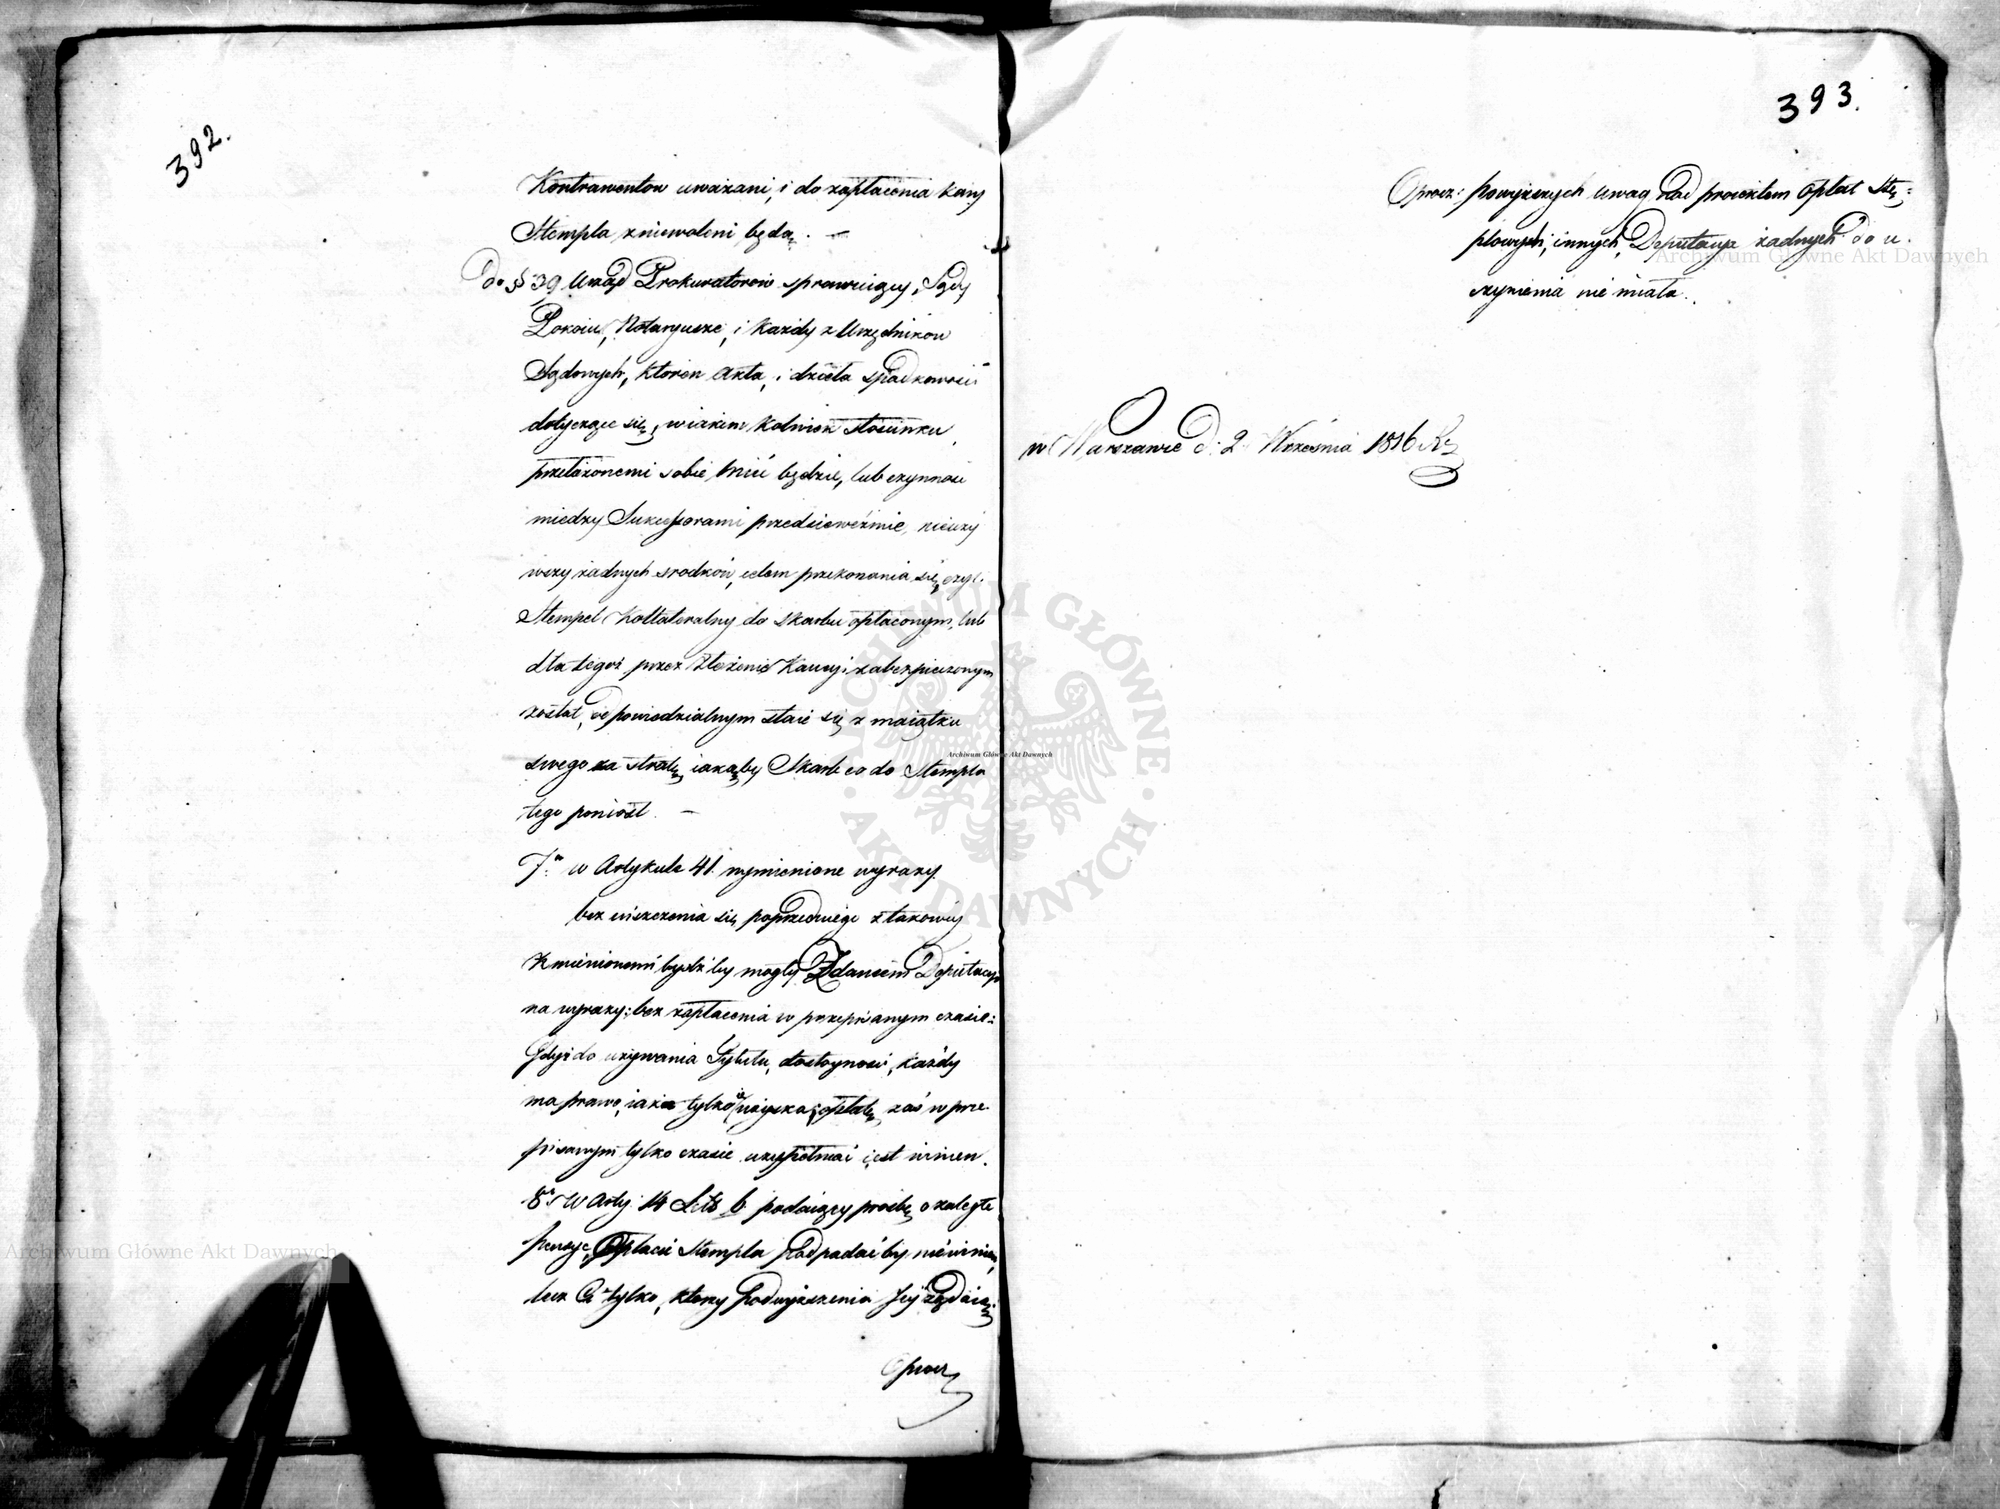 392.
Kontrawentow uważani, i do zapłacenia kary
Stempla zniewoleni będą. —
Do § 39 Urząd Prokuratorow sprawuiący, Sędzy
Pokoiu, Notaryusze, i każdy z Urzędnikow
Sądowych, ktoren Akta, i dzieła spadkowości
dotyczące się, w iakim kolwiek stosunku
przełożonemi sobie mieć będzie, lub czynności
miedzy Sukcessorami przedsieweźmie, nieuży
wszy żadnych srodków, celem przekonania się, czyli
Stempel Kollateralny do skarbu opłaconym, lub
dla tegoż przez złożenie Kaucyi zabezpieczonym
został, odpowiedzialnym staie się z maiątku
swego za stratę, iakąby Skarb co do Stempla
tego poniosł. —
7° w Artykule 41. wymienione wyrazy
bez uiszczenia się poprzedniego z takowey
zmienionemi bydź by mogły Zdaniem Deputacyi
na wyrazy: bez zapłacenia w przepisanym czasie:
Gdyż do używania Tytułu, dostoyności, każdy
ma prawo, iak tylko uzyska; opłatę zaś w prze
pisanym tylko czasie uzupełniać iest winien.
8° W Arty. 14 Litt b podaiący prosbę o zaległe
pensye, Opłacie Stempla podpadać by niewinien,
lecz Ci tylko, ktorzy podwyższenia Jey żądaią.
Oprocz
393.
Oprocz powyższych uwag nad proiektem Opłat Stę=
plowych, innych, Deputacya żadnych do u.
czynienia nie miała.
w Warszawie d. 2 Września 1816 Rr
Archiwum Główne Akt Dawnych
Archiwum Główne Akt Dawnych
Archiwum Główne Akt Dawnych
ARCHIWUM GŁÓWNE · AKT DAWNYCH ·